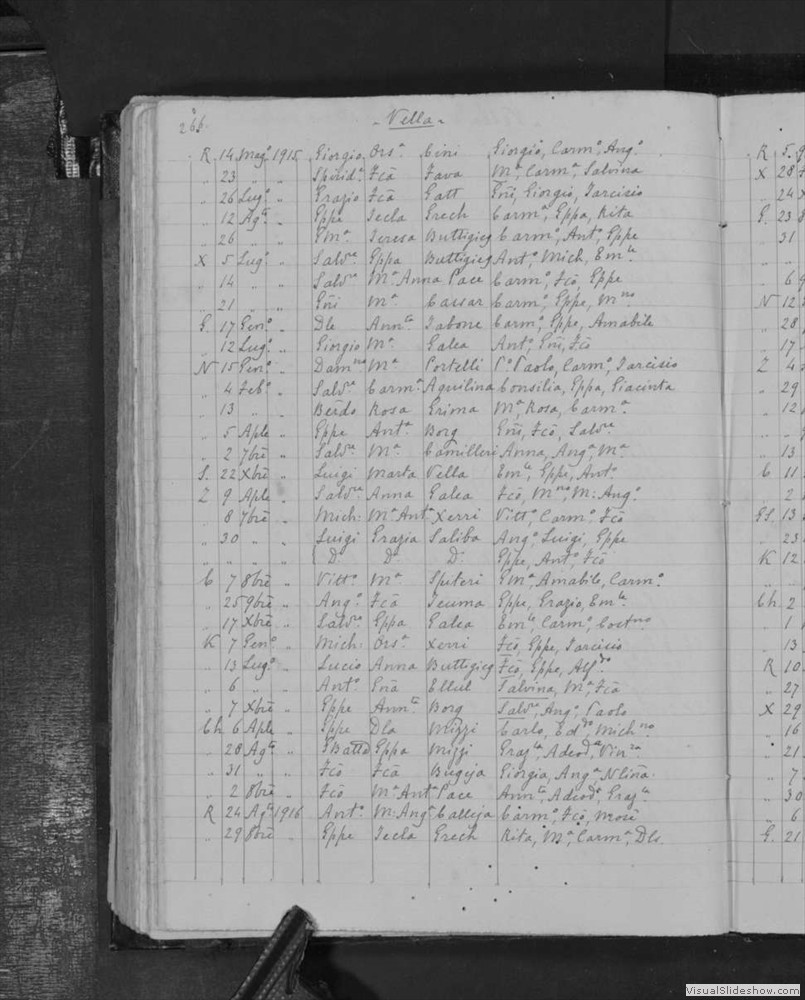 266
Vella
R 14 Mag.º 1915 Giorgio Ors.ª Cini Giorgio, Carm.º, Ang.º
" 23 " " Spirid.º Fcã Fava M.ª, Carm.ª, Salvina
" 26 Lug.º " Grazio Fcã Gatt Gñi, Giorgio, Tarcisio
" 12 Ag.to " Gppe Tecla Grech Carm.ª, Gppa, Rita
" 26 " " Gm.ª Teresa Buttigieg Carm.º, Ant.º, Gppe
X 5 Lug.º " Salv.re Gppa Buttigieg Ant.º, Mich, Em.le
" 14 " " Salv.re M.ª Anna Pace Carm.º, Fcõ, Gppe
" 21 " " Gñi M.ª Cassar Carm.º, Gppe, M.no
G. 17 Gen.º " Dle Ann.ta Tabone Carm.º, Gppe, Amabile
" 12 Lug.º " Giorgio M.ª Galea Ant.º, Gñi, Fcõ
N 15 Gen.º " Dam.no M.ª Portelli P.º Paolo, Carm.º, Tarcisio
" 4 Feb.º " Salv.re Carm.ª Aquilina Consilia, Gppa, Giacinta
" 13 " " Berdo Rosa Grima M.ª Rosa, Carm.ª
" 5 Aple " Gppe Ant.ª Borg Gñi, Fcõ, Salv.re
" 2 7bre " Salv.re M.ª Camilleri Anna, Ang.ª, M.ª
S. 22 Xbre " Luigi Marta Vella Em.le, Gppe, Ant.º
Z 9 Aple " Salv.re Anna Galea Fcõ, M.no, M: Ang.º
" 8 7bre " Mich: M.ª Ant.ª Xerri Vitt.º, Carm.º, Fcõ
" 30 " " Luigi Grazia Saliba Ang.º, Luigi, Gppe
" " " " D: D: D: Gppe, Ant.º, Fcõ
C 7 8bre " Vitt.º M.ª Spiteri Gm.ª Amabile, Carm.º
" 25 9bre " Ang.º Fcã Tcuma Gppe, Grazio, Em.le
" 17 Xbre " Salv.re Gppa Galea Em.le, Carm.º, Cost.no
K 7 Gen.º " Mich: Ors.ª Xerri Fcõ, Gppe, Tarcisio
" 13 Lug.º " Lucio Anna Buttigieg Fcõ, Gppe, Alf.do
" 6 " " Ant.º Gñã Ellul Salvina, M.ª, Fcã
" 7 Xbre " Gppe Ann.ta Borg Salv.re, Ang.º, Paolo
Ch. 6 Aple " Gppe Dla Mizzi Carlo, Ed.do, Mich.no
" 28 Ag.to " GBatta Gppa Mizzi Graz.la, Adeod.ª, Vin.za
" 31 " " Fcõ Fcã Bugeja Giorgia, Ang.ª
" 2 8bre " Fcõ M.ª Ant.ª Pace Ann.ta, Adeod.º, Graz.la
R 24 Ag.to 1916 Ant.º M: Ang.ª Calleja Carm.º, Fcõ, Mosè
" 29 8bre " Gppe Tecla Grech Rita, M.ª, Carm.ª, Dla.
R 5
X 28
24
G. 23
31
"
6
N 12
28
17
Z 4
29
12
"
13
C 11
2
GS. 13
23
K 12
Ch. 2
1
13
R 10
27
X 29
16
21
7
30
6
G. 21
VisualSlideshow.com